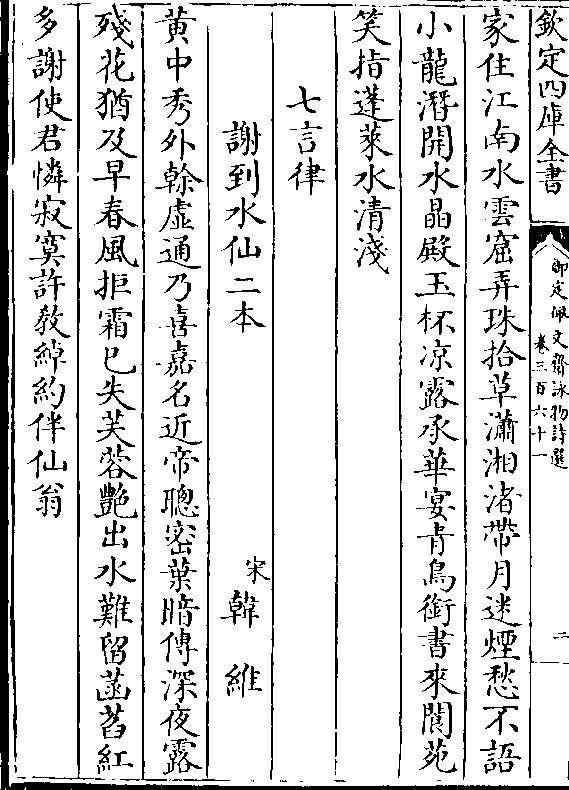 欽定四庫全書
御定佩文齋詠物詩選
卷三百六十一
二
家住江南水雲窟弄珠拾草瀟湘渚帶月迷煙愁不語
小龍潛開水晶殿玉杯凉露承華宴青鳥銜書來閬苑
笑指蓬萊水清淺
七言律
謝到水仙二本
宋韓維
黄中秀外榦虛通乃喜嘉名近帝聰密葉暗傳深夜露
殘花猶及早春風拒霜已失芙蓉艷出水難留菡萏紅
多謝使君憐寂寞許教綽約伴仙翁